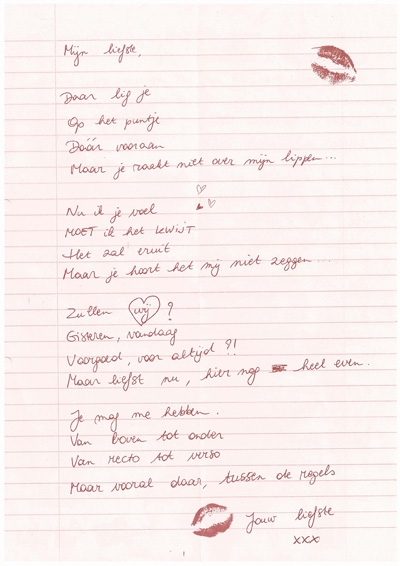 Mijn liefste,
Daar lig je
Op het puntje
Dáár vooraan
Maar je raakt niet over mijn lippen...
Nu ik je voel
MOET ik het KWIJT
Het zal eruit
Maar je hoort het mij niet zeggen...
Zullen wij ?
Gisteren, vandaag
Voorgoed, voor altijd ?!
Maar liefst nu, hier nog heel even.
Je mag me hebben.
Van boven tot onder
Van recto tot verso
Maar vooral daar, tussen de regels
Jouw liefste
xxx